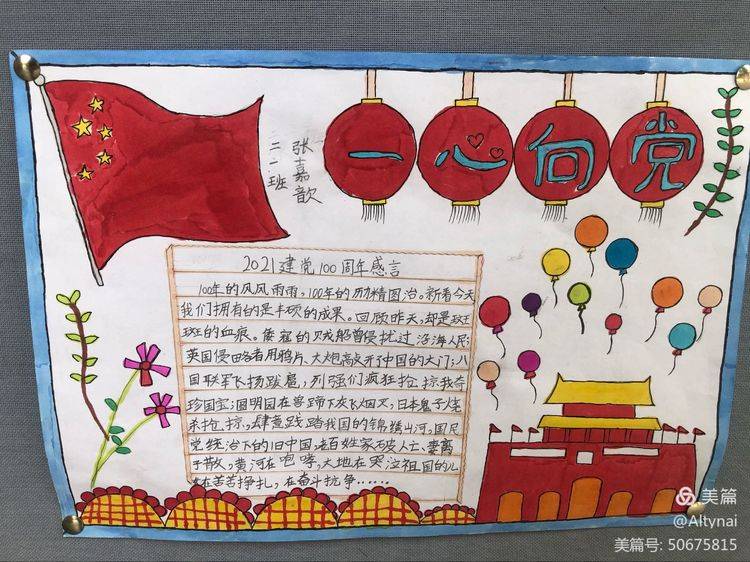 一心向党
二一班
张嘉歆
2021建党100周年感言
100年的风风雨雨，100年的励精图治。新看今天
我们拥有的是丰硕的成果。回顾昨天，却是斑
斑的血痕。倭寇的贼船曾侵扰过沿海人民；
英国侵略者用鸦片、大炮敲开了中国的大门；八
国联军飞扬跋扈，列强们疯狂抢掠我奇
珍国宝；圆明园在兽蹄下灰飞烟灭，日本鬼子烧
杀抢掠，肆意践踏我国的锦绣山河，国民
党统治下的旧中国，老百姓家破人亡、妻离
子散，黄河在咆哮，大地在哭泣祖国的儿
在苦苦挣扎，在奋斗抗争……
美篇
@Altynai
美篇号: 50675815